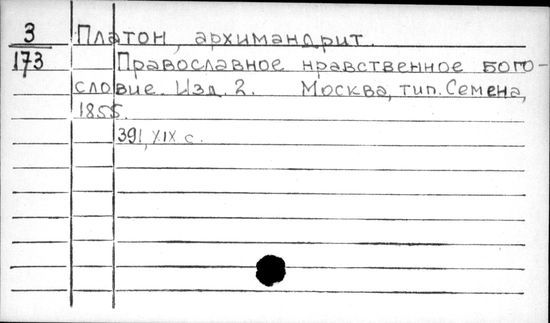 3 Платон, архимандрит.
173 Православное нравственное бого-
словие. Изд. 2. Москва, тип. Семена,
1855.
391, XIX с.